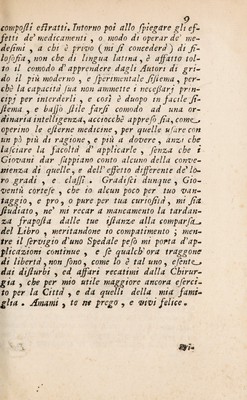 9
composti estratti. Intorno poi allo spiegare gli ef-
fetti de' medicamenti, o modo di operar de' me-
desimi, a chi è provo (mi si concederà) di fi-
losofia, non che di lingua latina, è affatto tol-
to il comodo d'apprendere dagli Autori di gri-
do il più moderno, e sperimentale sistema, per-
chè la capacità sua non ammette i necessarj prin-
cipj per interderli, e così è duopo in facile si-
stema, e basso stile farsi comodo ad una or-
dinaria intelligenza, acciocchè appreso sia, come
operino le esterne medicine, per quelle usare con
un pò più di ragione, e più a dovere, anzi che
lasciare la facoltà d' applicarle, senza che i
Giovani dar sappiano conto alcuno della conve-
nienza di quelle, e dell' effetto differente de' lo-
ro gradi, e classi. Gradisci dunque, Gio-
ventù cortese, che io alcun poco per tuo van-
taggio, e prò, o pure per tua curiosità, mi sia
studiato, ne' mi recar a mancamento la tardan-
za fraposta dalle tue istanze alla comparsa
del Libro, meritandone io compatimento; men-
tre il servigio d'uno Spedale peso mi porta d'ap-
plicazioni continue, e se qualch' ora traggone
di libertà, non sono, come lo è tal uno, esente
dai disturbi, ed affari recatimi dalla Chirur-
gia, che per mio utile maggiore ancora eserci-
to per la Città, e da quelli della mia fami-
glia. Amami, te ne prego, e vivi felice.